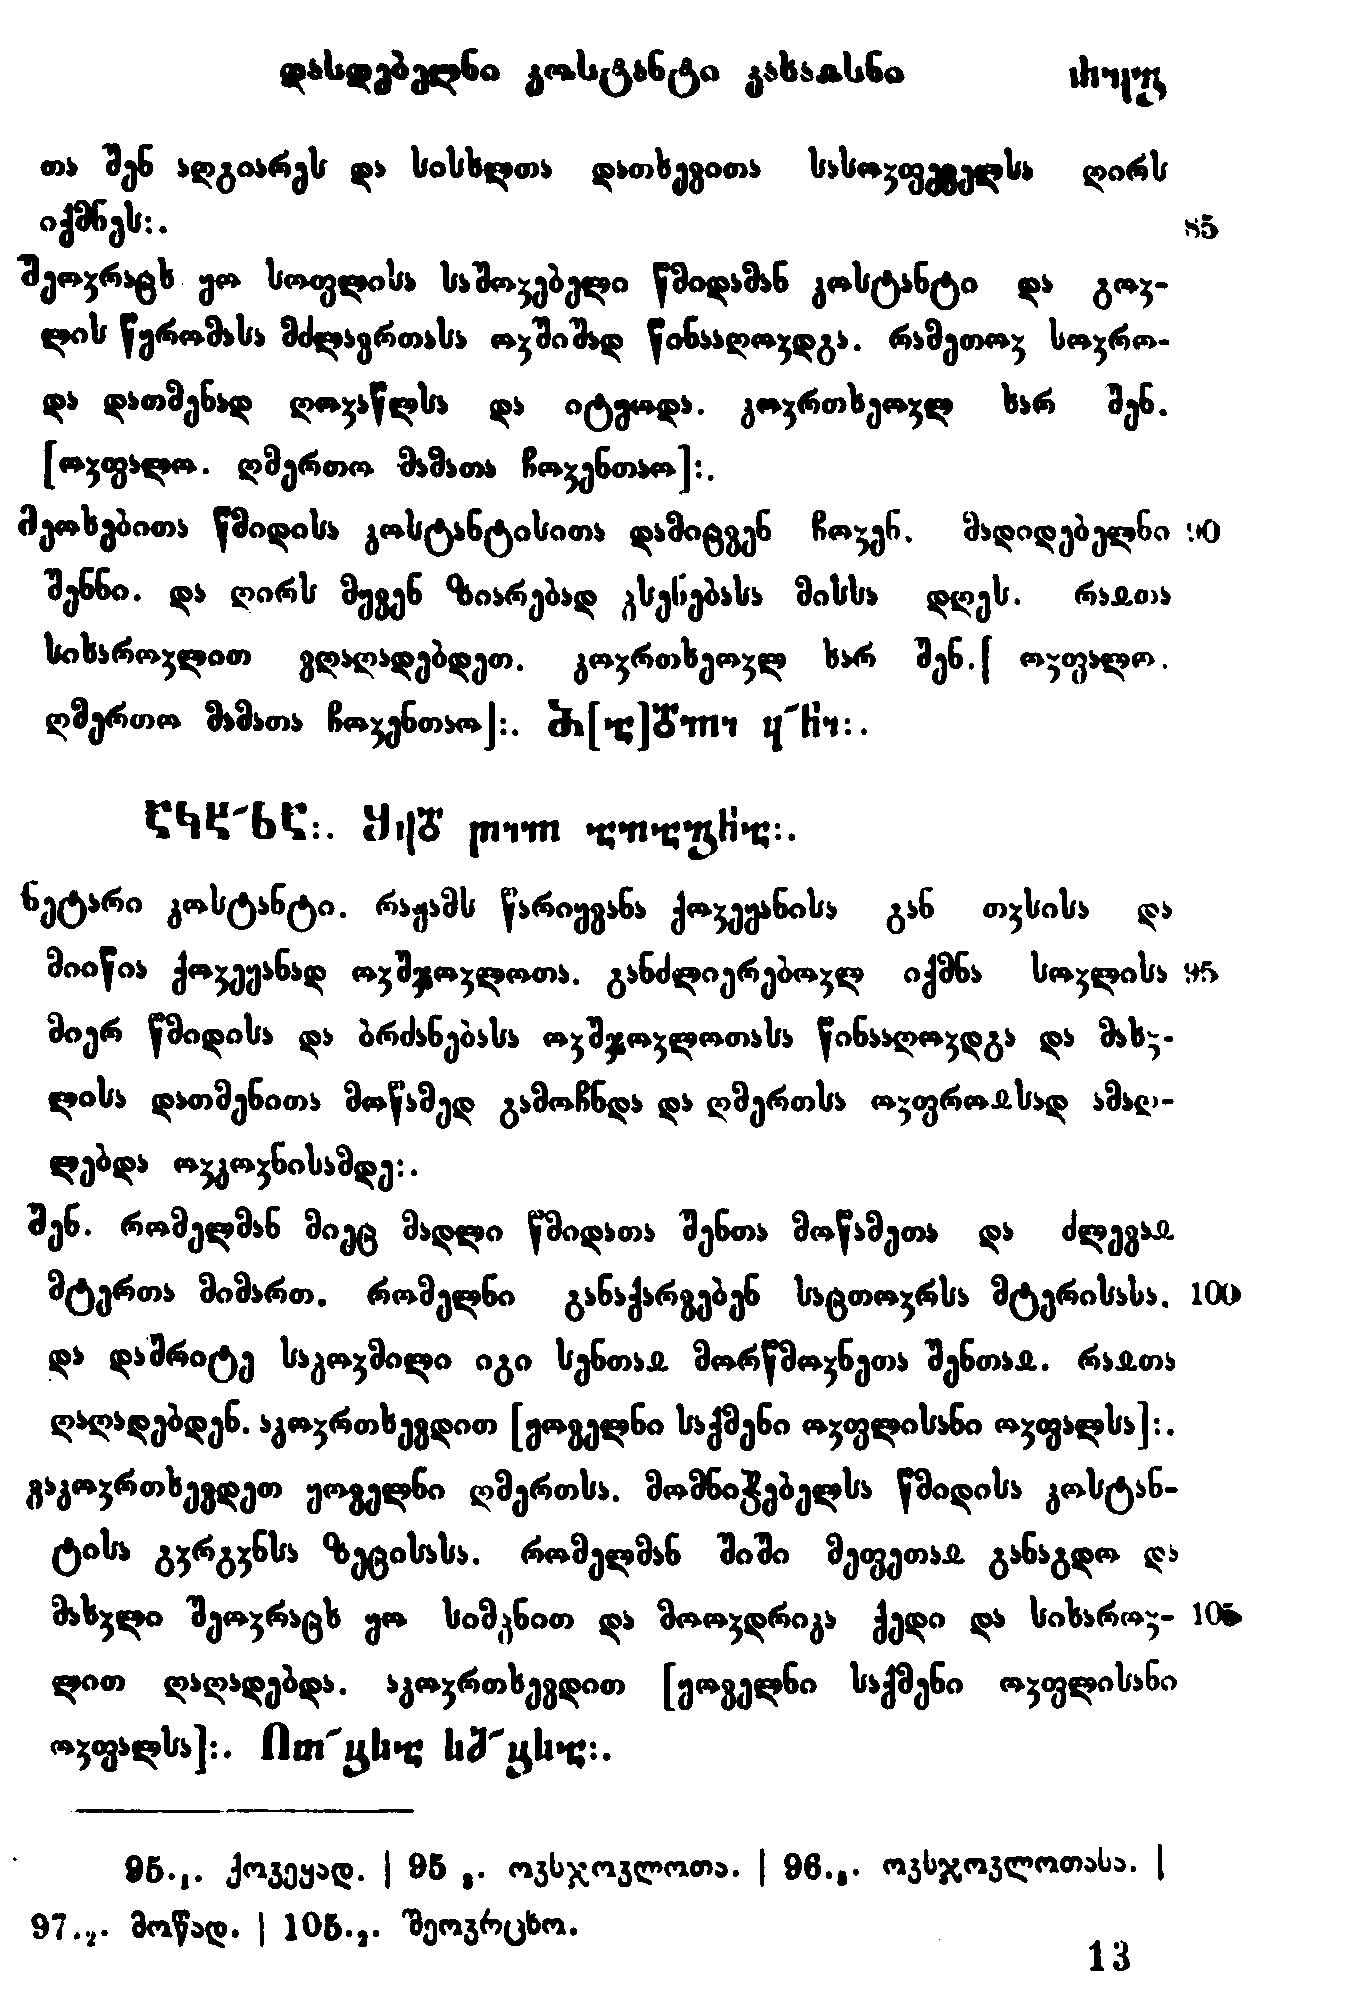 დასდებელნი კოსტანტი კახაჲსნი
თა შენ აღგიარეს და სისხლთა დათხევითა სასოჳფეველსა ღირს
იქმნეს:.
85
შეოჳრაცხ ყო სოფლისა საშოჳებელი წმიდამან კოსტანტი და გოჳ-
ლის წყრომასა მძლავრთასა ოჳშიშად წინააღოჳდგა. რამეთოჳ სოჳრო-
და დათმენად ღოჳაწლსა და იტყოდა. კოჳრთხეოჳლ ხარ შენ.
[ოჳფალო. ღმერთო მამათა ჩოჳენთაო]:.
მეოხებითა წმიდისა კოსტანტისითა დამიცვენ ჩოჳენ. მადიდებელნი 90
შენნი. და ღირს მყვენ ზიარებად ჴსენებასა მისსა დღეს. რაჲთა
სიხაროჳლით ვღაღადებდეთ. კოჳრთხეოჳლ ხარ შენ.[ ოჳფალო.
ღმერთო მამათა ჩოჳენთაო]:.
ნეტარი კოსტანტი. რაჟამს წარიყვანა ქოჳეყანისა გან თჳსისა და
მიიწია ქოჳეყანად ოჳშჯოჳლოთა. განძლიერებოჳლ იქმნა სოჳლისა 95
მიერ წმიდისა და ბრძანებასა ოჳშჯოჳლოთასა წინააღოჳდგა და მახჳ-
ლისა დათმენითა მოწამედ გამოჩნდა და ღმერთსა ოჳფროჲსად ამაღ-
ლებდა ოჳკოჳნისამდე:.
შენ. რომელმან მიეც მადლი წმიდათა შენთა მოწამეთა და ძლევაჲ
მტერთა მიმართ. რომელნი განაქარვებენ საცთოჳრსა მტერისასა. 100
და დაშრიტე საკოჳმილი იგი სენთაჲ მორწმოჳნეთა შენთაჲ. რაჲთა
ღაღადებდენ. აკოჳრთხევდით [ყოველნი საქმენი ოჳფლისანი ოჳფალსა]:.
ვაკოჳრთხევდეთ ყოველნი ღმერთსა. მომნიჭებელსა წმიდისა კოსტან-
ტისა გჳრგჳნსა ზეცისასა. რომელმან შიში მეფეთაჲ განაგდო და
მახჳლი შეოჳრაცხ ყო სიმჴნით და მოოჳდრიკა ქედი და სიხაროჳ- 105
ლით ღაღადებდა. აკოჳრთხევდით [ყოველნი საქმენი ოჳფლისანი
ოჳფალსა]:.
95.₁. ქოჳეყად. | 95 ₃. ოჳსჯოჳლოთა. | 96.₅. ოჳსჯოჳლოთასა. |
97.₂. მოწად. | 105.₂. შეოჳრცხო.
13